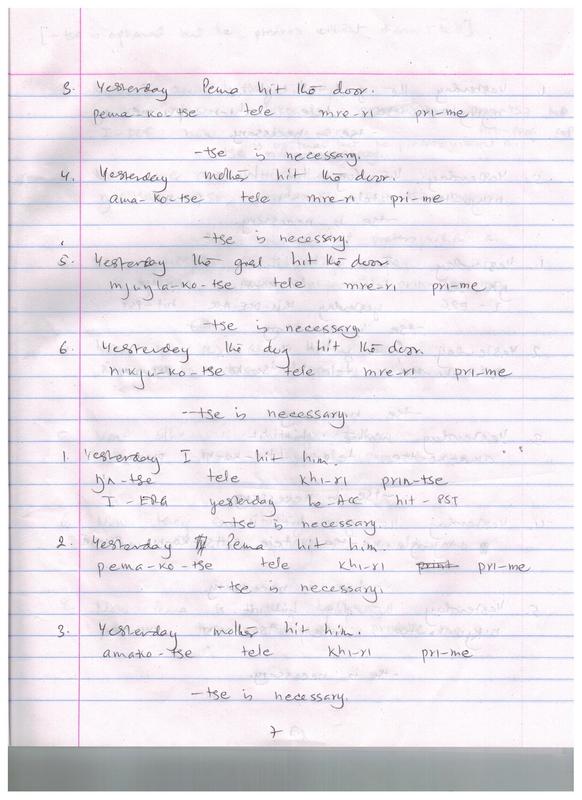 3. Yesterday Pema hit the door.
pema-ko-tse tele mre-ri pri-me
-tse is necessary.
4. Yesterday mother hit the door.
ama-ko-tse tele mre-ri pri-me
-tse is necessary.
5. Yesterday the goal hit the door.
mjuyla-ko-tse tele mre-ri pri-me
-tse is necessary.
6. Yesterday the dog hit the door.
nikju-ko-tse tele mre-ri pri-me
-tse is necessary.
1. Yesterday I hit him.
tele khi-ri prin-tse
I-ERG yesterday he-ACC hit-PST
-tse is necessary.
2. Yesterday Pema hit him.
pema-ko-tse tele khi-ri pri-me
-tse is necessary.
3. Yesterday mother hit him.
amako-tse tele khi-ri pri-me
-tse is necessary.
7